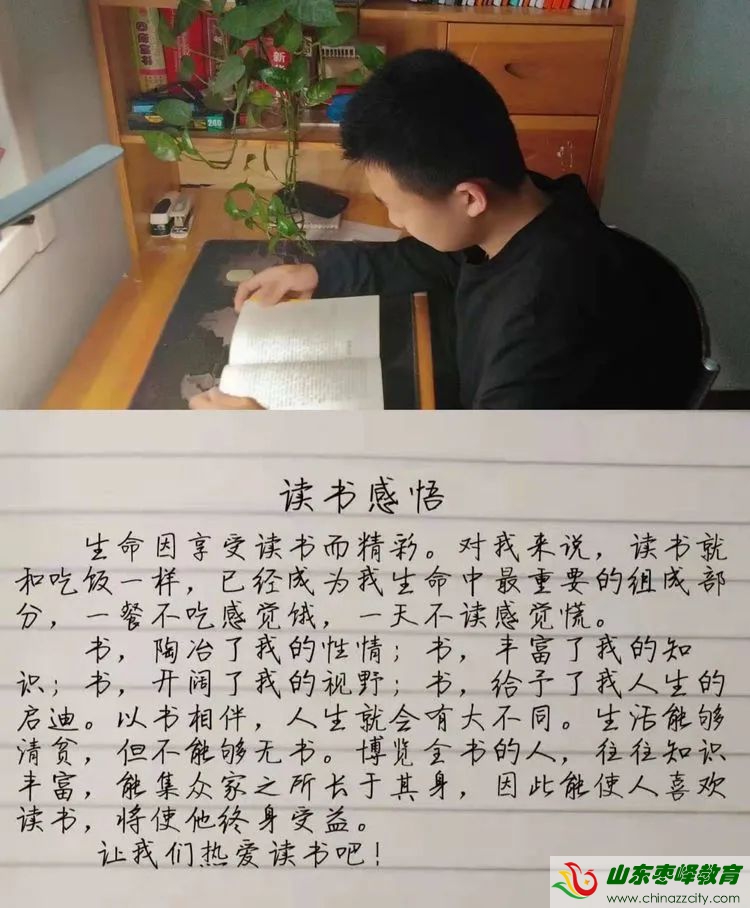 240
读书感悟
生命因享受读书而精彩。对我来说，读书就
和吃饭一样，已经成为我生命中最重要的组成部
分，一餐不吃感觉饿，一天不读感觉慌。
书，陶冶了我的性情；书，丰富了我的知
识；书，开阔了我的视野；书，给予了我人生的
启迪。以书相伴，人生就会有大不同。生活能够
清贫，但不能够无书。博览全书的人，往往知识
丰富，能集众家之所长于其身，因此能使人喜欢
读书，将使他终身受益。
让我们热爱读书吧！
山东枣峄教育
www.chinazzcity.com